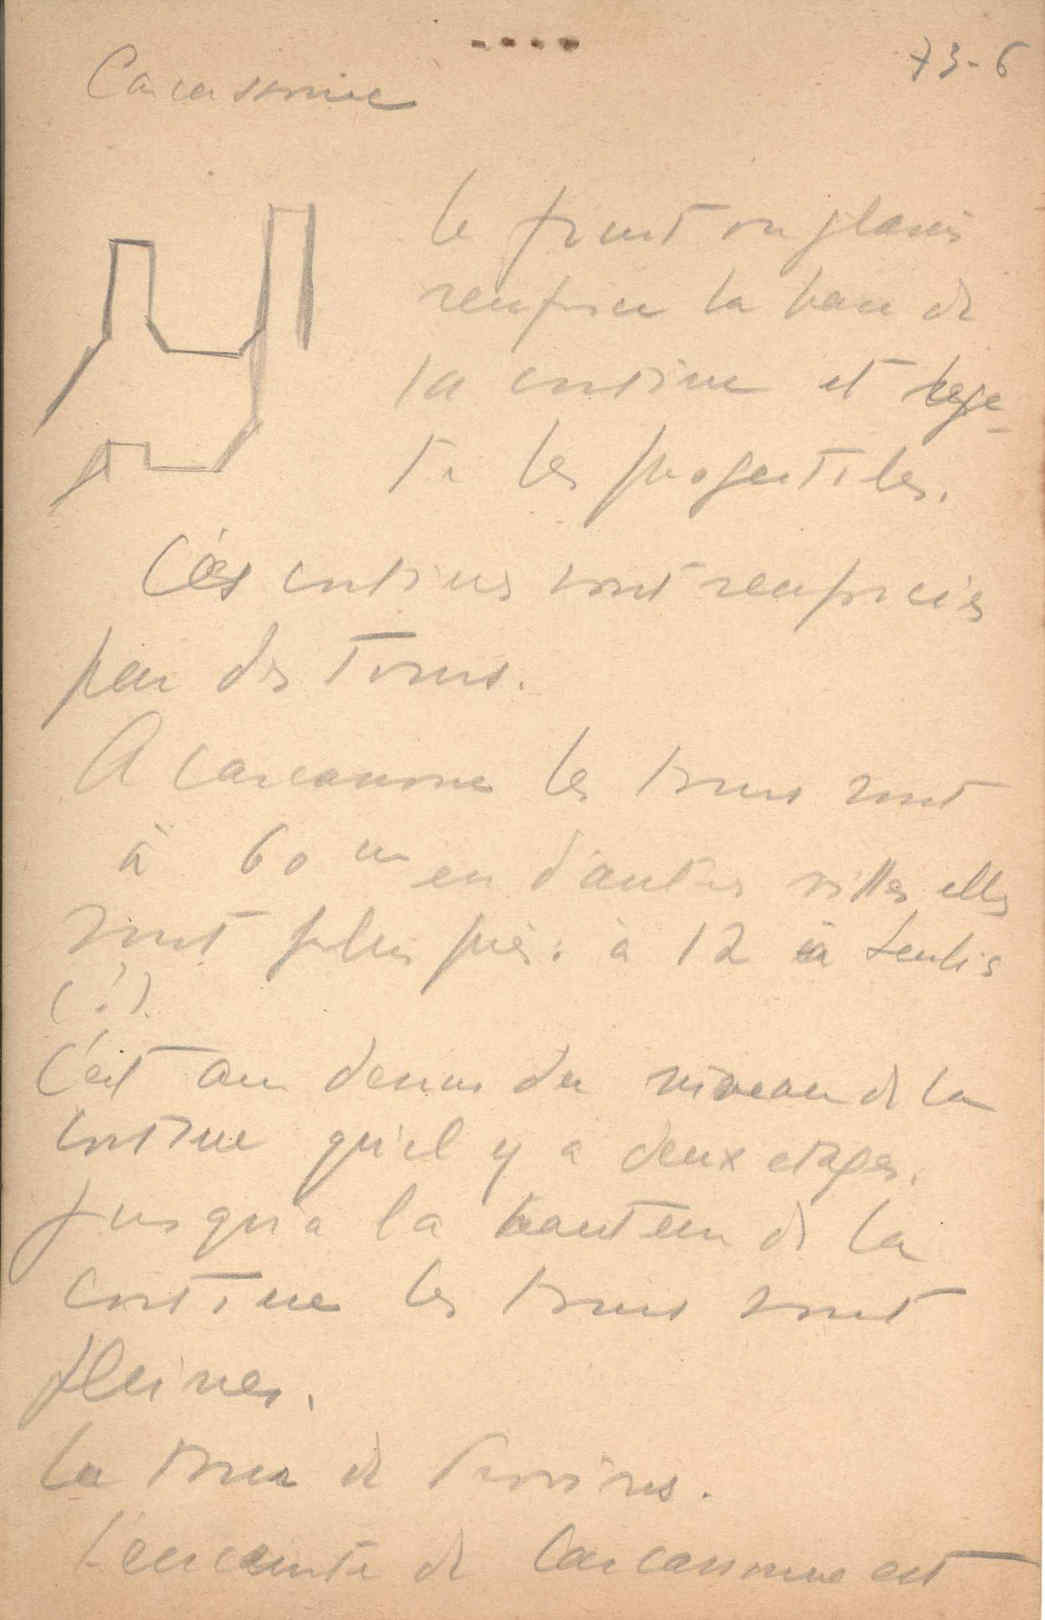 Carcassonne
73-6
le fruit ou glacis
renforce la base de
la courtine et reje-
te les projectiles.
Ces courtines sont renforcées
par des tours.
A Carcassonne les tours sont
à 60 m en d'autres villes elles
sont plus près : à 12 à Senlis
(!).
C'est au dessus du niveau de la
courtine qu'il y a deux etages.
Jusqu'a la hauteur de la
courtine les tours sont
pleines.
La tour de Provins.
L'enceinte de Carcassonne est